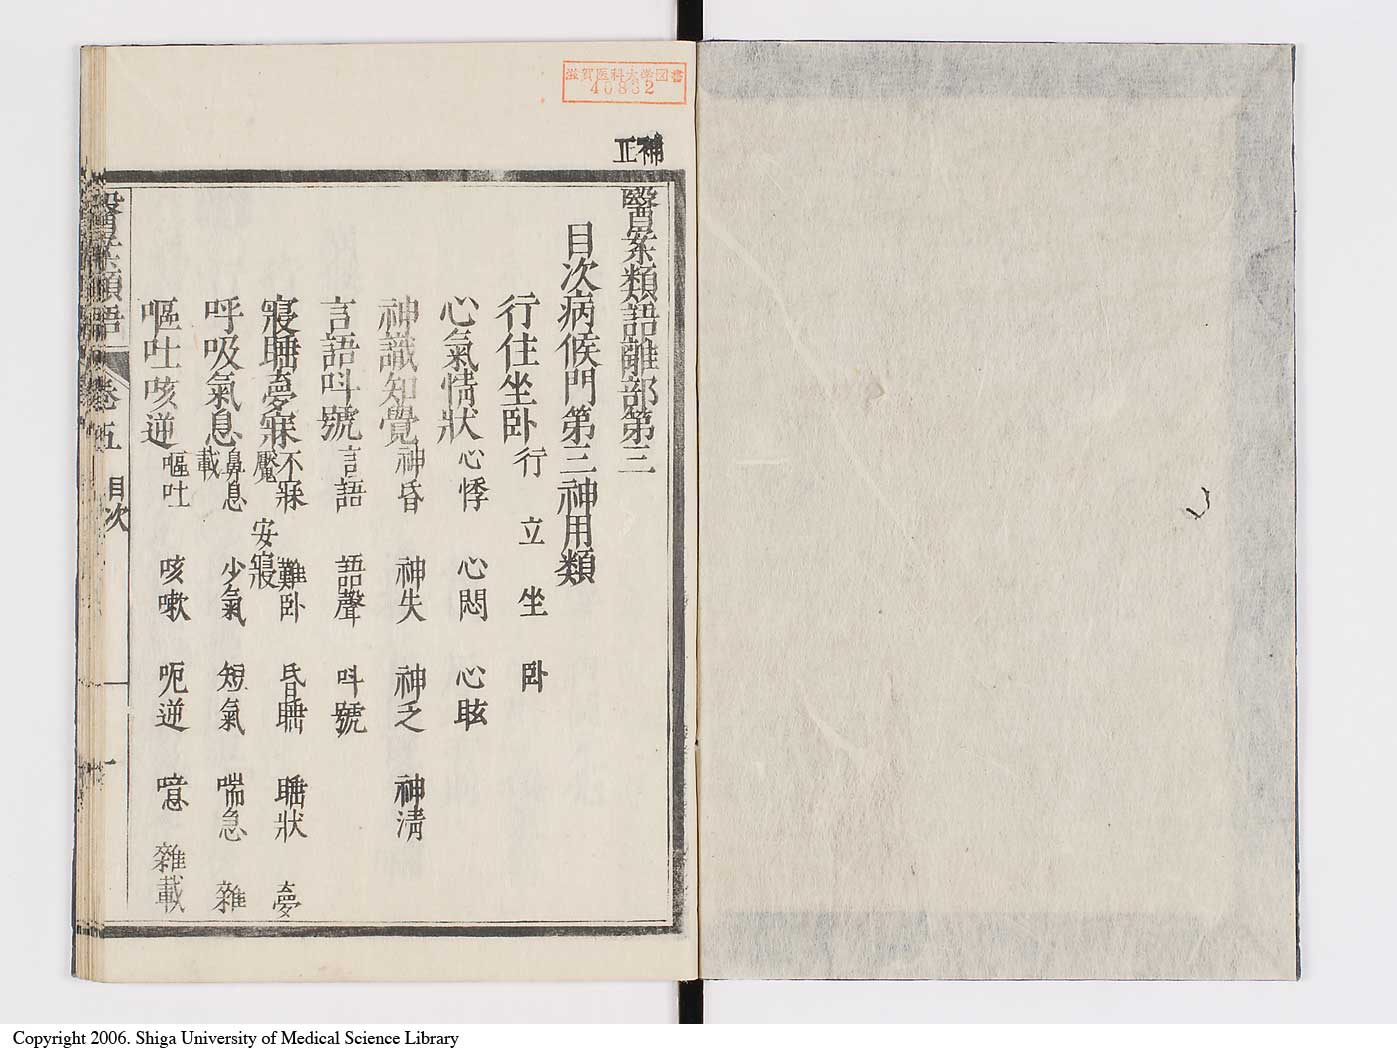 滋賀医科大学図書
40832
補正
醫案類語離部第三
目次病候門第三神用類
行住坐卧 行 立 坐 卧
心氣情狀 心悸 心悶 心眩
神識知覺 神昏 神失 神乏 神清
言語呌號 言語 語聲 呌號
寢睡夢寐 不寐 難卧 昏睡 睡狀 夢魘 安寢
呼吸氣息 鼻息 少氣 短氣 喘急 雜載
嘔吐咳逆 嘔吐 咳嗽 呃逆 噫 雜載
醫案類語 卷五 目次 一
Copyright 2006. Shiga University of Medical Science Library